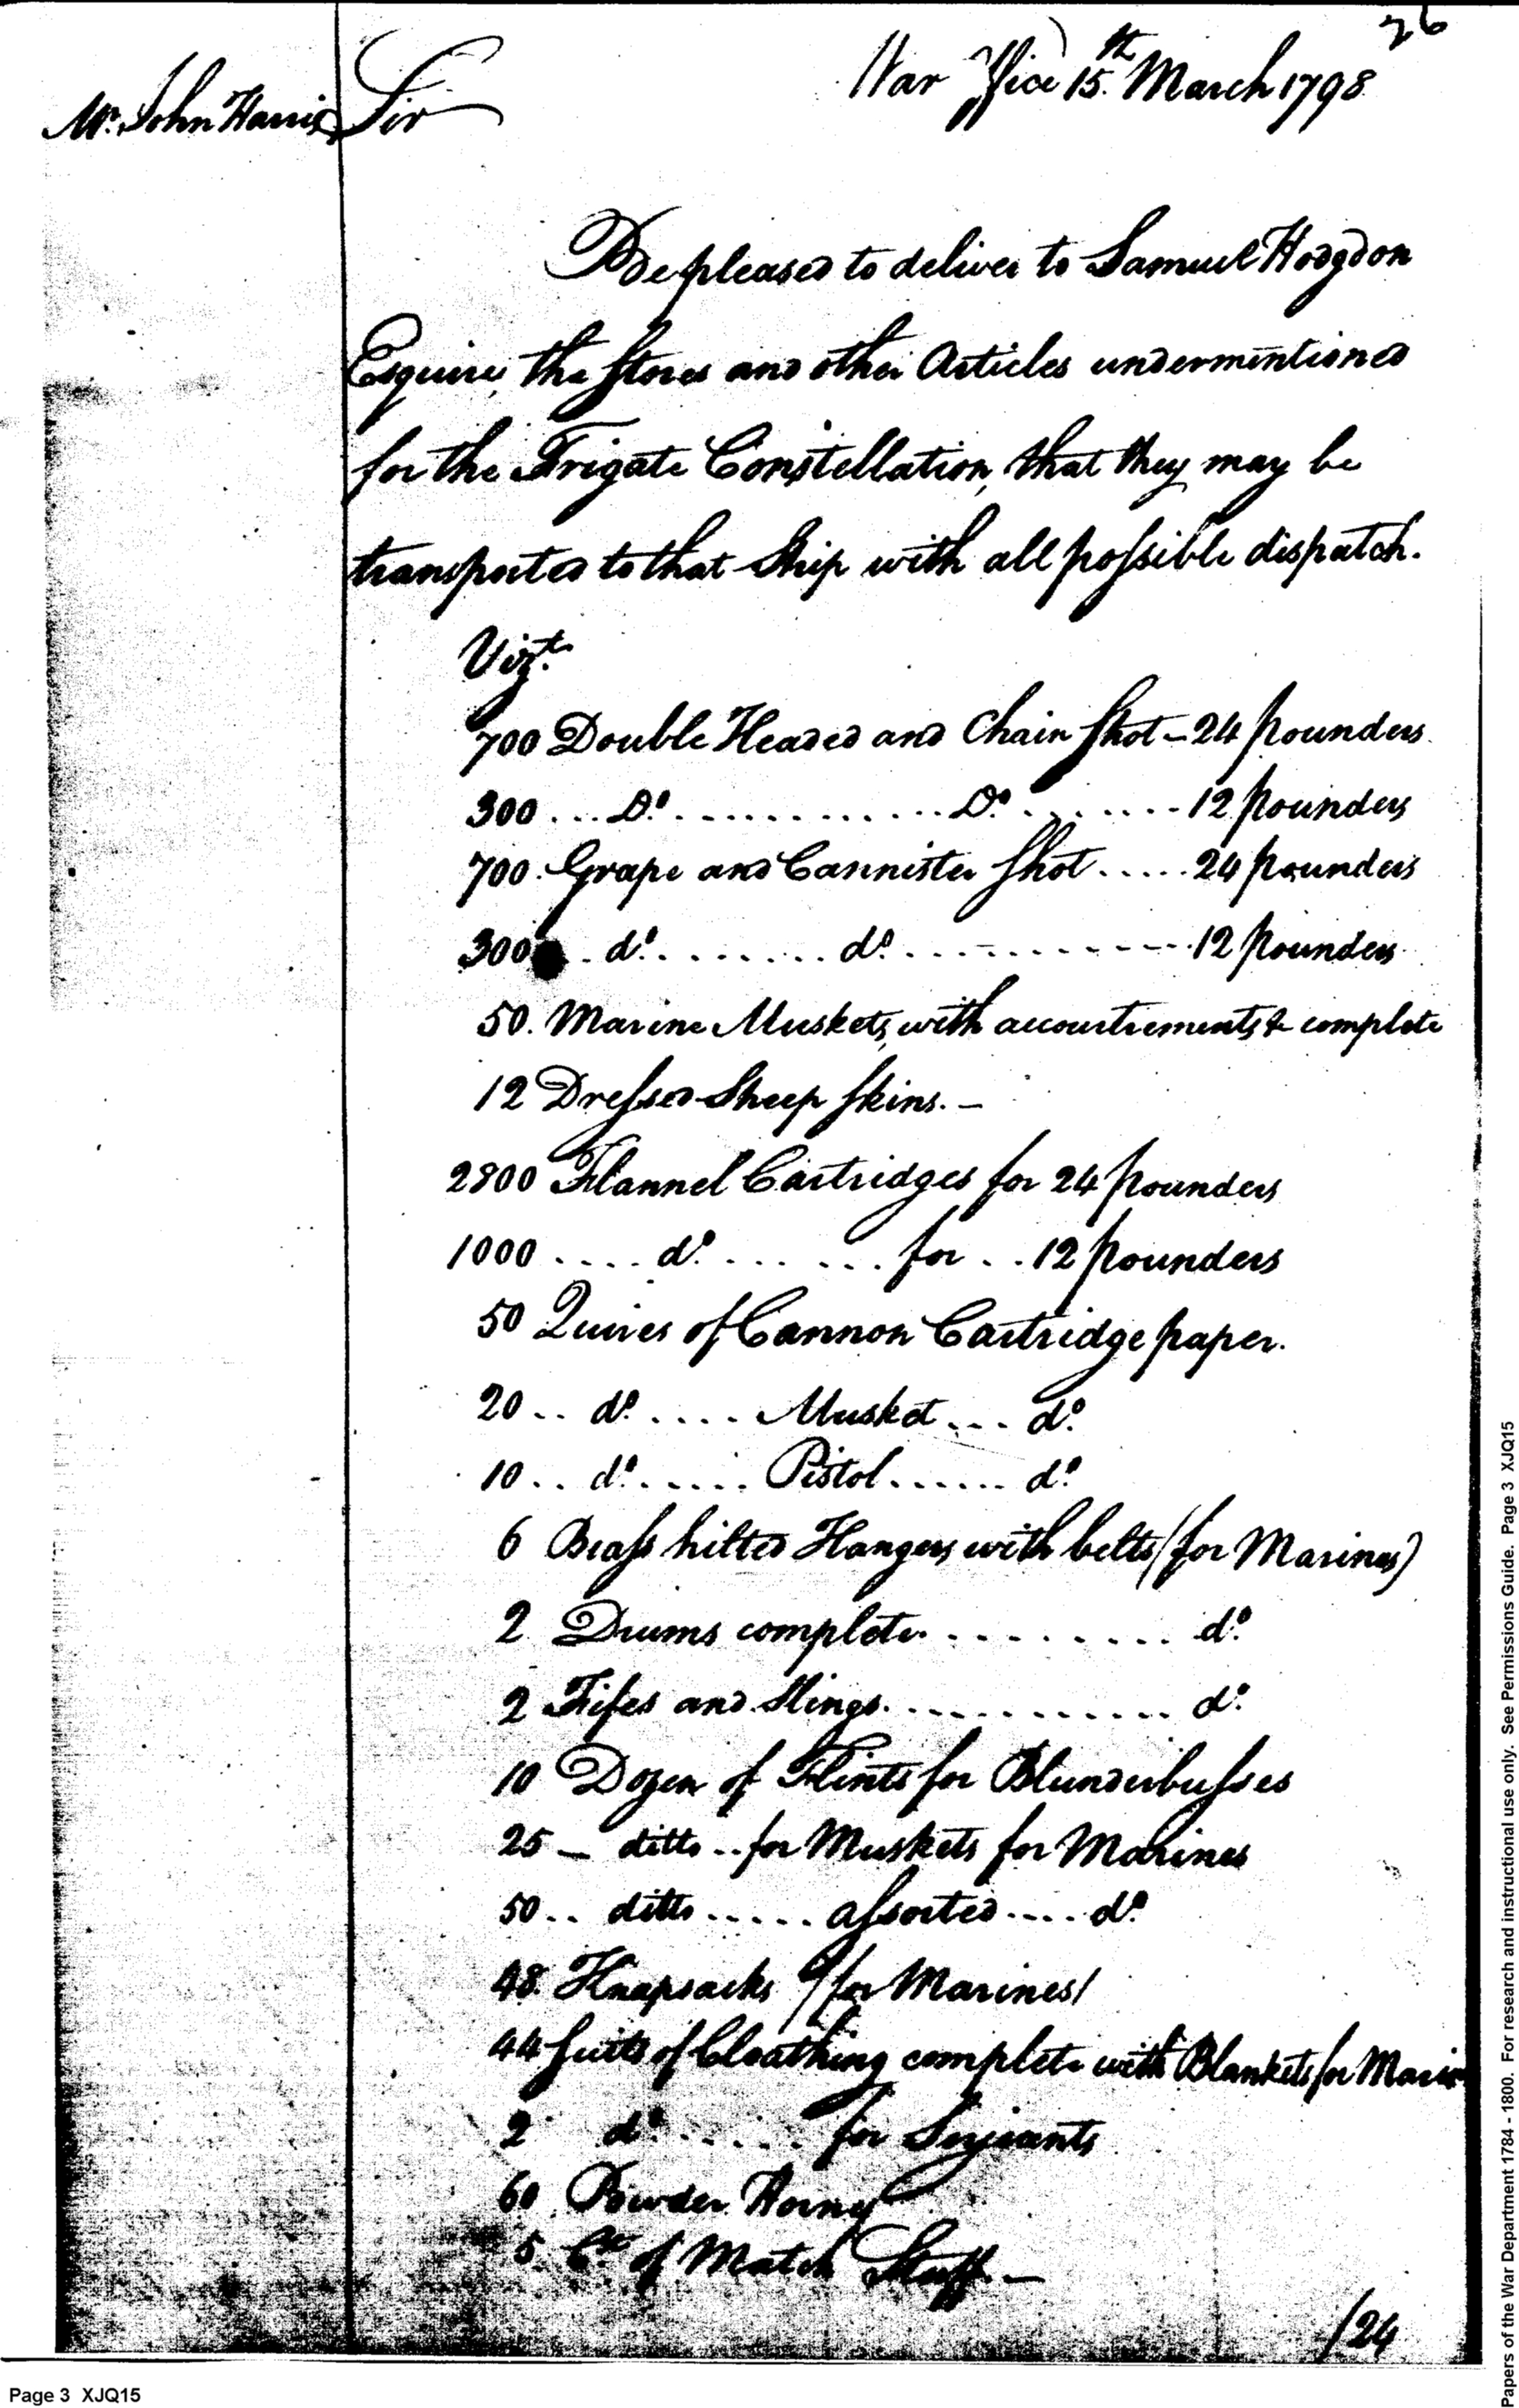 26
War Office 15th March 1798
Mr. John Harris
Sir
Be pleased to deliver to Samuel Hodgdon
Esquire, the Stores and other Articles undermentioned
for the Frigate Constellation, that they may be
transported to that Ship with all possible dispatch.
Vizt.
700 Double Headed and Chain Shot - 24 pounders
300 ... Do. ............ Do. ....... 12 pounders
700. Grape and Cannister Shot ..... 24 pounders
300 . do. ........ do. ............ 12 pounders
50. Marine Muskets, with accoutrements & complete
12 Dressed Sheep Skins. -
2800 Flannel Cartridges for 24 pounders
1000 .... do. ... ... for .. 12 pounders
50 Quires of Cannon Cartridge paper.
20 .. do. .... Musket ... do.
10 .. do. ..... Pistol ...... do.
6 Brass hilted Hangers with belts (for Marines)
2 Drums complete. ......... do.
2 Fifes and Slings. ............ do.
10 Dozen of Flints for Blunderbusses
25 - ditto .. for Muskets for Marines
50 .. ditto ..... assorted .... do.
48. Knapsacks /for Marines/
44 Suits of Cloathing complete with Blankets for Marin
2 do. ...... for Serjeants
60 Powder Horns
5. Ct. of Match Stuff. -
/24
Page 3 XJQ15
Papers of the War Department 1784 - 1800. For research and instructional use only. See Permissions Guide. Page 3 XJQ15